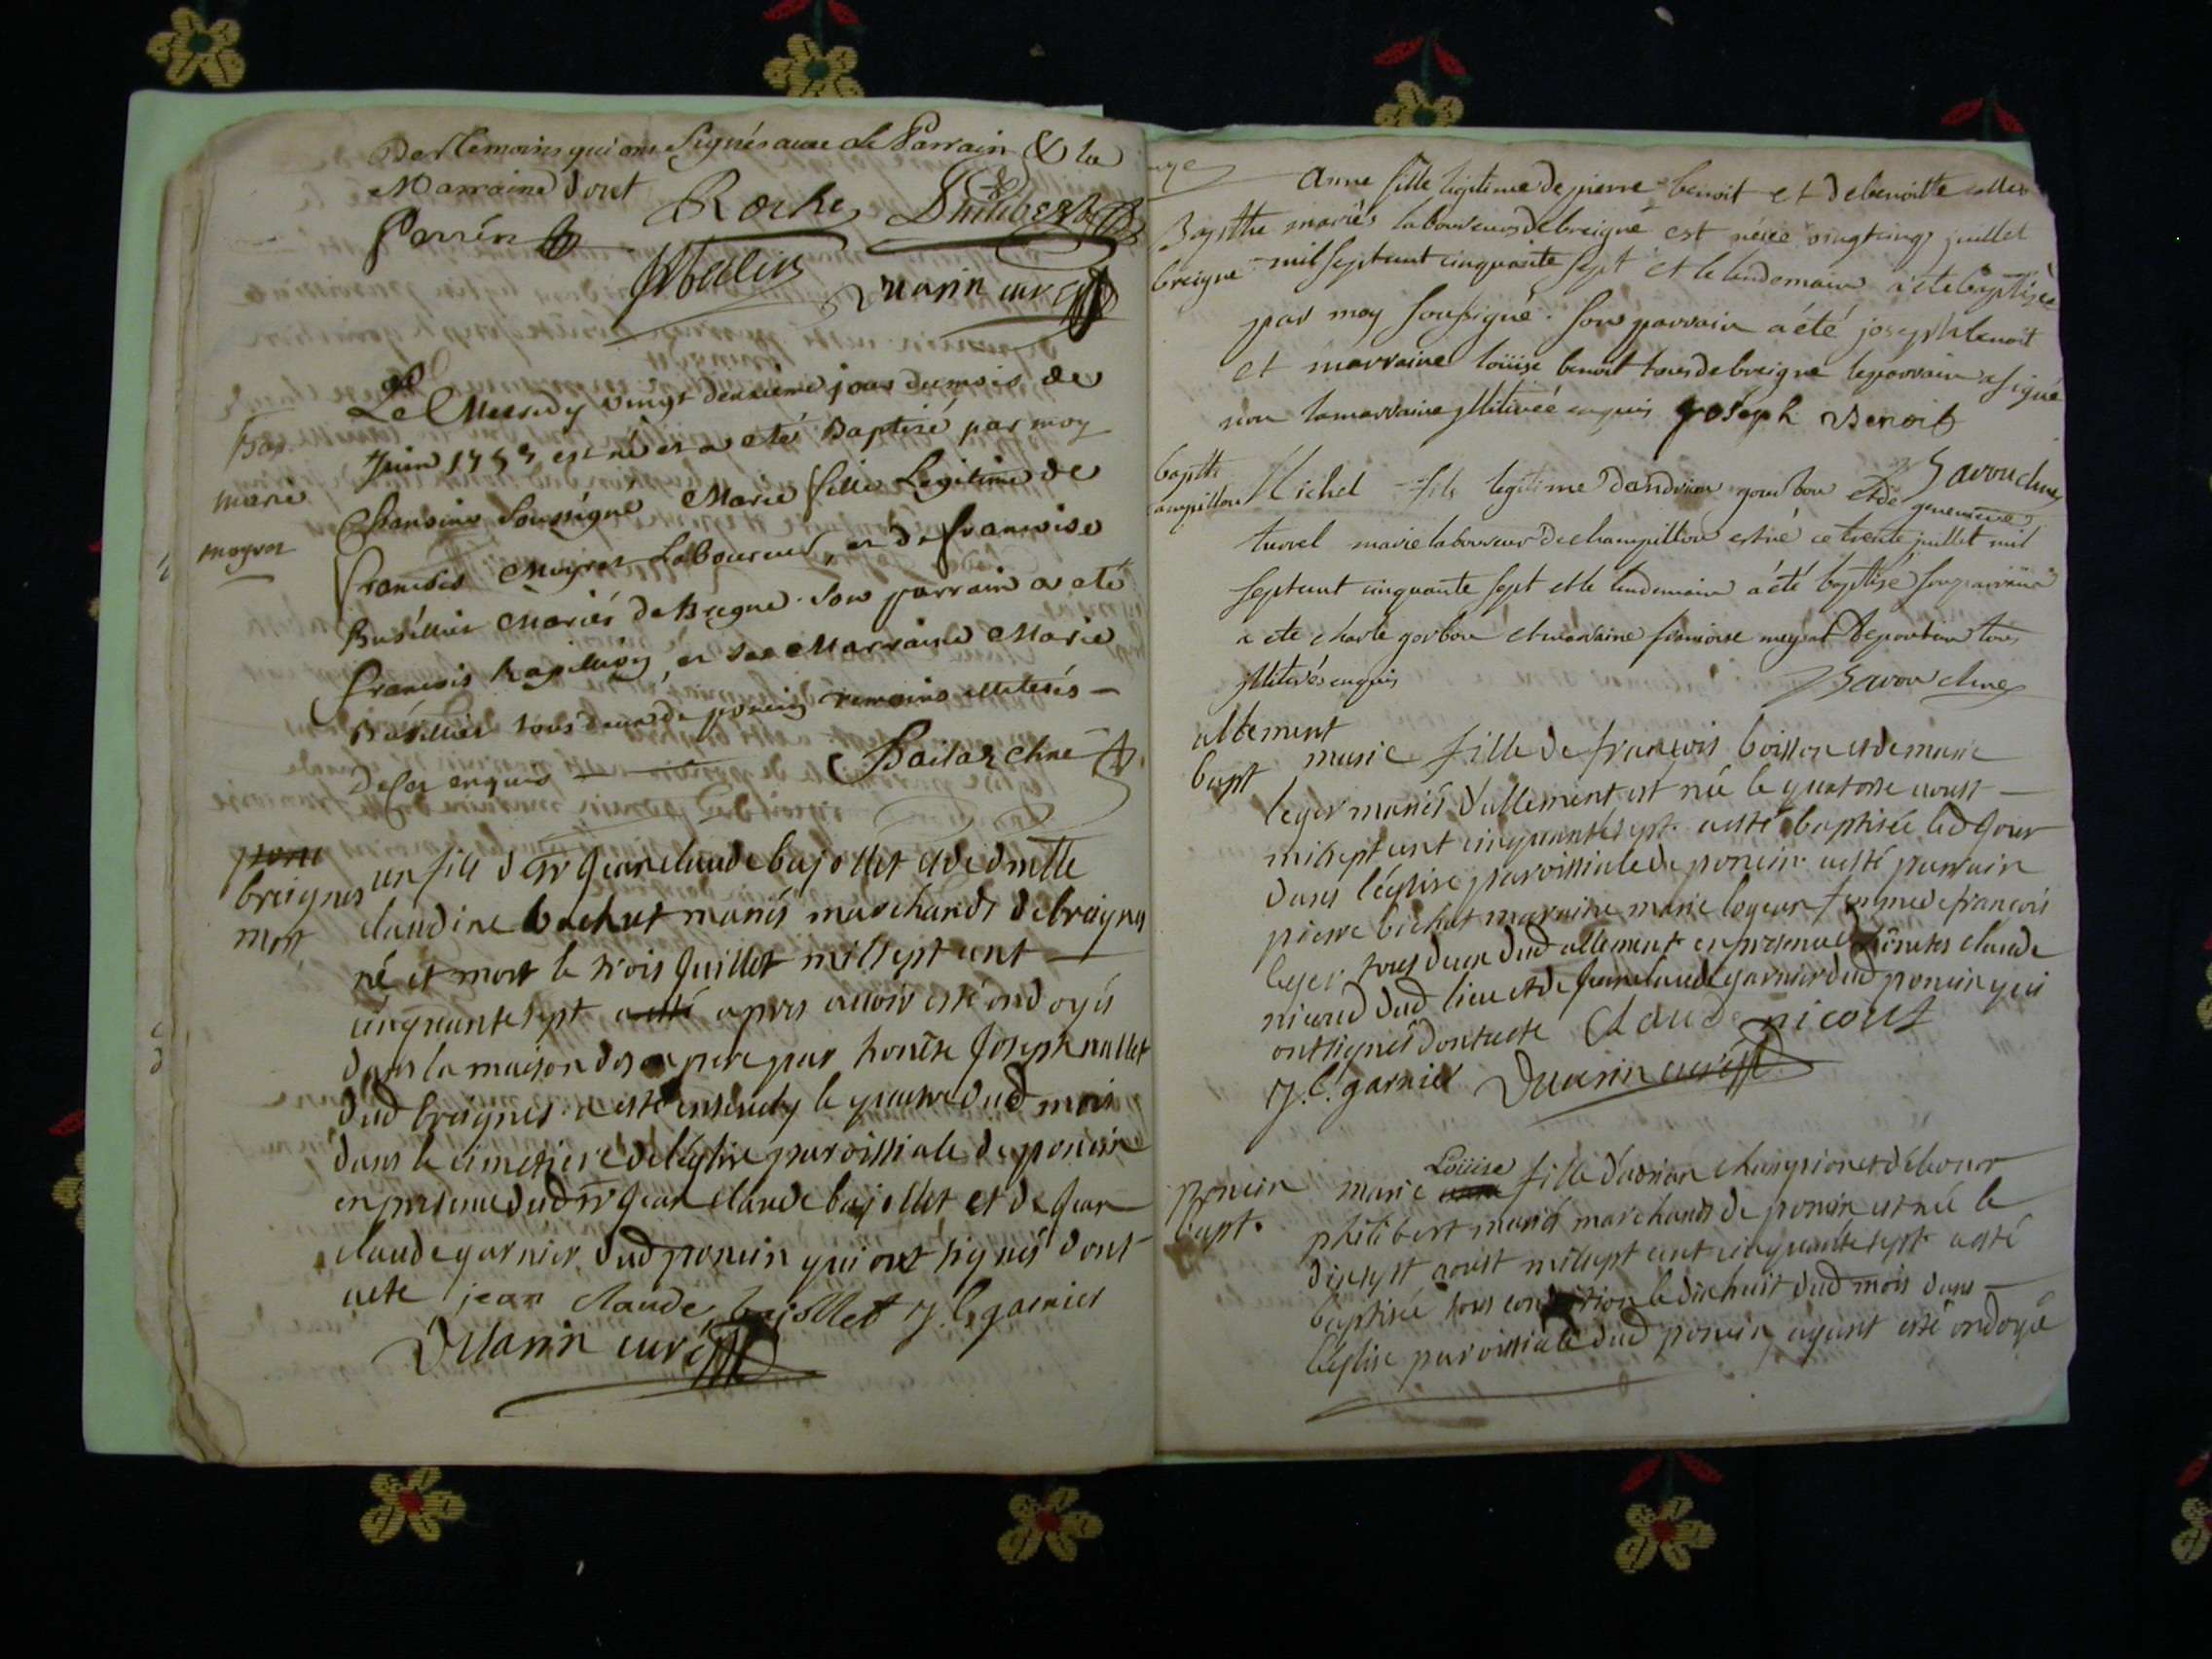 Des témoins qui ont Signés avec le Parrain & la
Marraine dont
Roche Philibert
Perrin
Duarin curé
Bap.
marie
moyret
Le Mecredy vingt deuxième jour du mois de
Juin 1757 est né et a etés Baptisé par moy
Chanoine Soussigné Marie fille Legitime de
francois Moyret Laboureur, et de francoise
Busillier Mariés de Bregne. Son parrain a eté
francois et sa Marraine Marie
Busillier tous deux de poncin temoins illiterés
de ce enquis
breignes
mort
un fils de Sr Jean claude bajollet et de dmlle
claudine bachut mariés marchands de breignes
né et mort le trois Juillet mil sept cent
cinquante sept a esté apres avoir esté ondoyé
dans la maison de son pere par honête Joseph nallet
dud breignes a esté enseuely le quatre dud mois
dans le cimetiere de l'église paroissiale de poncin
en presence dud Sr Jean claude bajollet et de Jean
claude garnier dud poncin qui ont signés dont
acte jean claude bajollet J. C. garnier
Duarin curé
Baptte
breigne
anne fille legitime de pierre benoit et de benoitte
mariés laboureurs de breigne est néé ce vingt cinq juillet
mil sept cent cinquante sept et le lendemain a été baptisée
par moy soussigné. Son parrain a été joseph benoit
et marraine loüise benoit tous de breigne le parrain a signé
non la marraine illiterée enquis joseph Benoit
Savou chne
baptte
champillon
Michel fils legitime d'andrien gourbon et de genevieve
turrel mariés laboureur de champillon est né ce trente juillet mil
sept cent cinquante sept et le lendemain a été baptisé son parrain
a ete charle gorbon et marraine francoise meyrat de tous
illiterés enquis Savou chne
allement
bapt
marie fille de francois boisson et de marie
leger mariés d'allement est née le quatorse aoust
mil sept cent cinquante sept. a esté baptisée led Jour
dans l'église paroissiale de poncin. a esté parrain
pierre bichat maraine marie femme de francois
leger tous deux dud allement en presence d'hônetes claude
nicoud dud lieu et de Jean claude garnier dud poncin qui
ont signés dont acte Claude nicout
J. C. garnier Duarin curé
poncin
bapt.
Loüise
marie fille d'adrian champion et d'eleonor
philibert mariés marchands de poncin est née le
dixsept aoust mil sept cent cinquante sept a esté
baptisée sous condition le dix huit dud mois dans
l'église paroissiale dud poncin ayant esté ondoyé